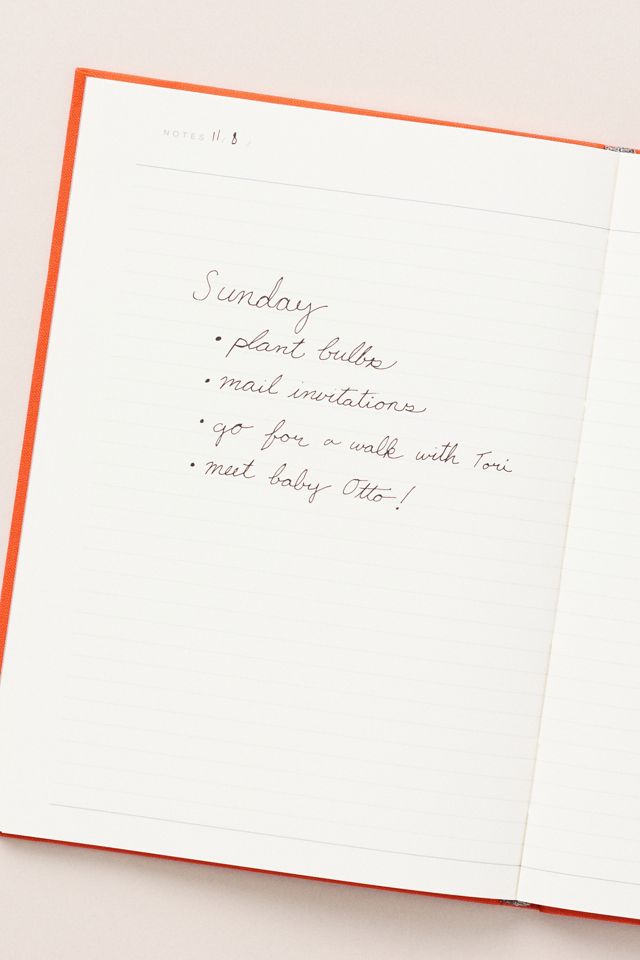 NOTES 11/8/
Sunday
• plant bulbs
• mail invitations
• go for a walk with Tori
• meet baby Otto!